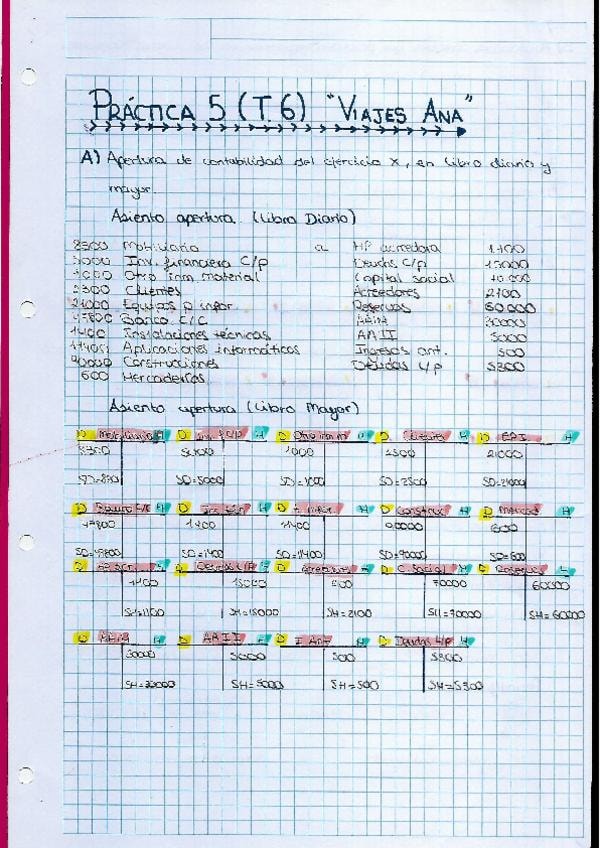 PRÁCTICA 5 (T.6) "VIAJES ANA"
A) Apertura de contabilidad del ejercicio X, en libro diario y
mayor.
Asiento apertura. (Libro Diario)
Mobiliario a HP acreedora 1100
5000 Inv. financiera C/p Deudas C/p 15000
1000 Otro inm. material Capital social
2500 Clientes Acreedores 2100
21000 Equipos p infor. Reservas 60000
Banco C/C AAIA 30000
1400 Instalaciones técnicas AAII 5000
Aplicaciones informáticos Ingresos ant. 500
90000 Construcciones Deudas L/p 5300
600 Mercaderías
Asiento apertura (Libro Mayor)
D Mobiliario H D H D Otro inm H D Clientes H D E.P.I. H
5000 1000 2500 21000
SD=5000 SD=1000 SD=2500 SD=21000
D Banco C/C H D H D H D Construc H D Mercad H
1400 11400 90000 600
SD=1400 SD=11400 SD=90000 SD=600
D H D Deudas C/p H D H D C. Social H D Reservas H
1100 15000 70000 60000
SH=1100 SH=15000 SH=2100 SH=70000 SH=60000
D AAIA H D AAII H D I. Ant H D Deudas L/p H
30000 5000 500 5300
SH=30000 SH=5000 SH=500 SH=5300